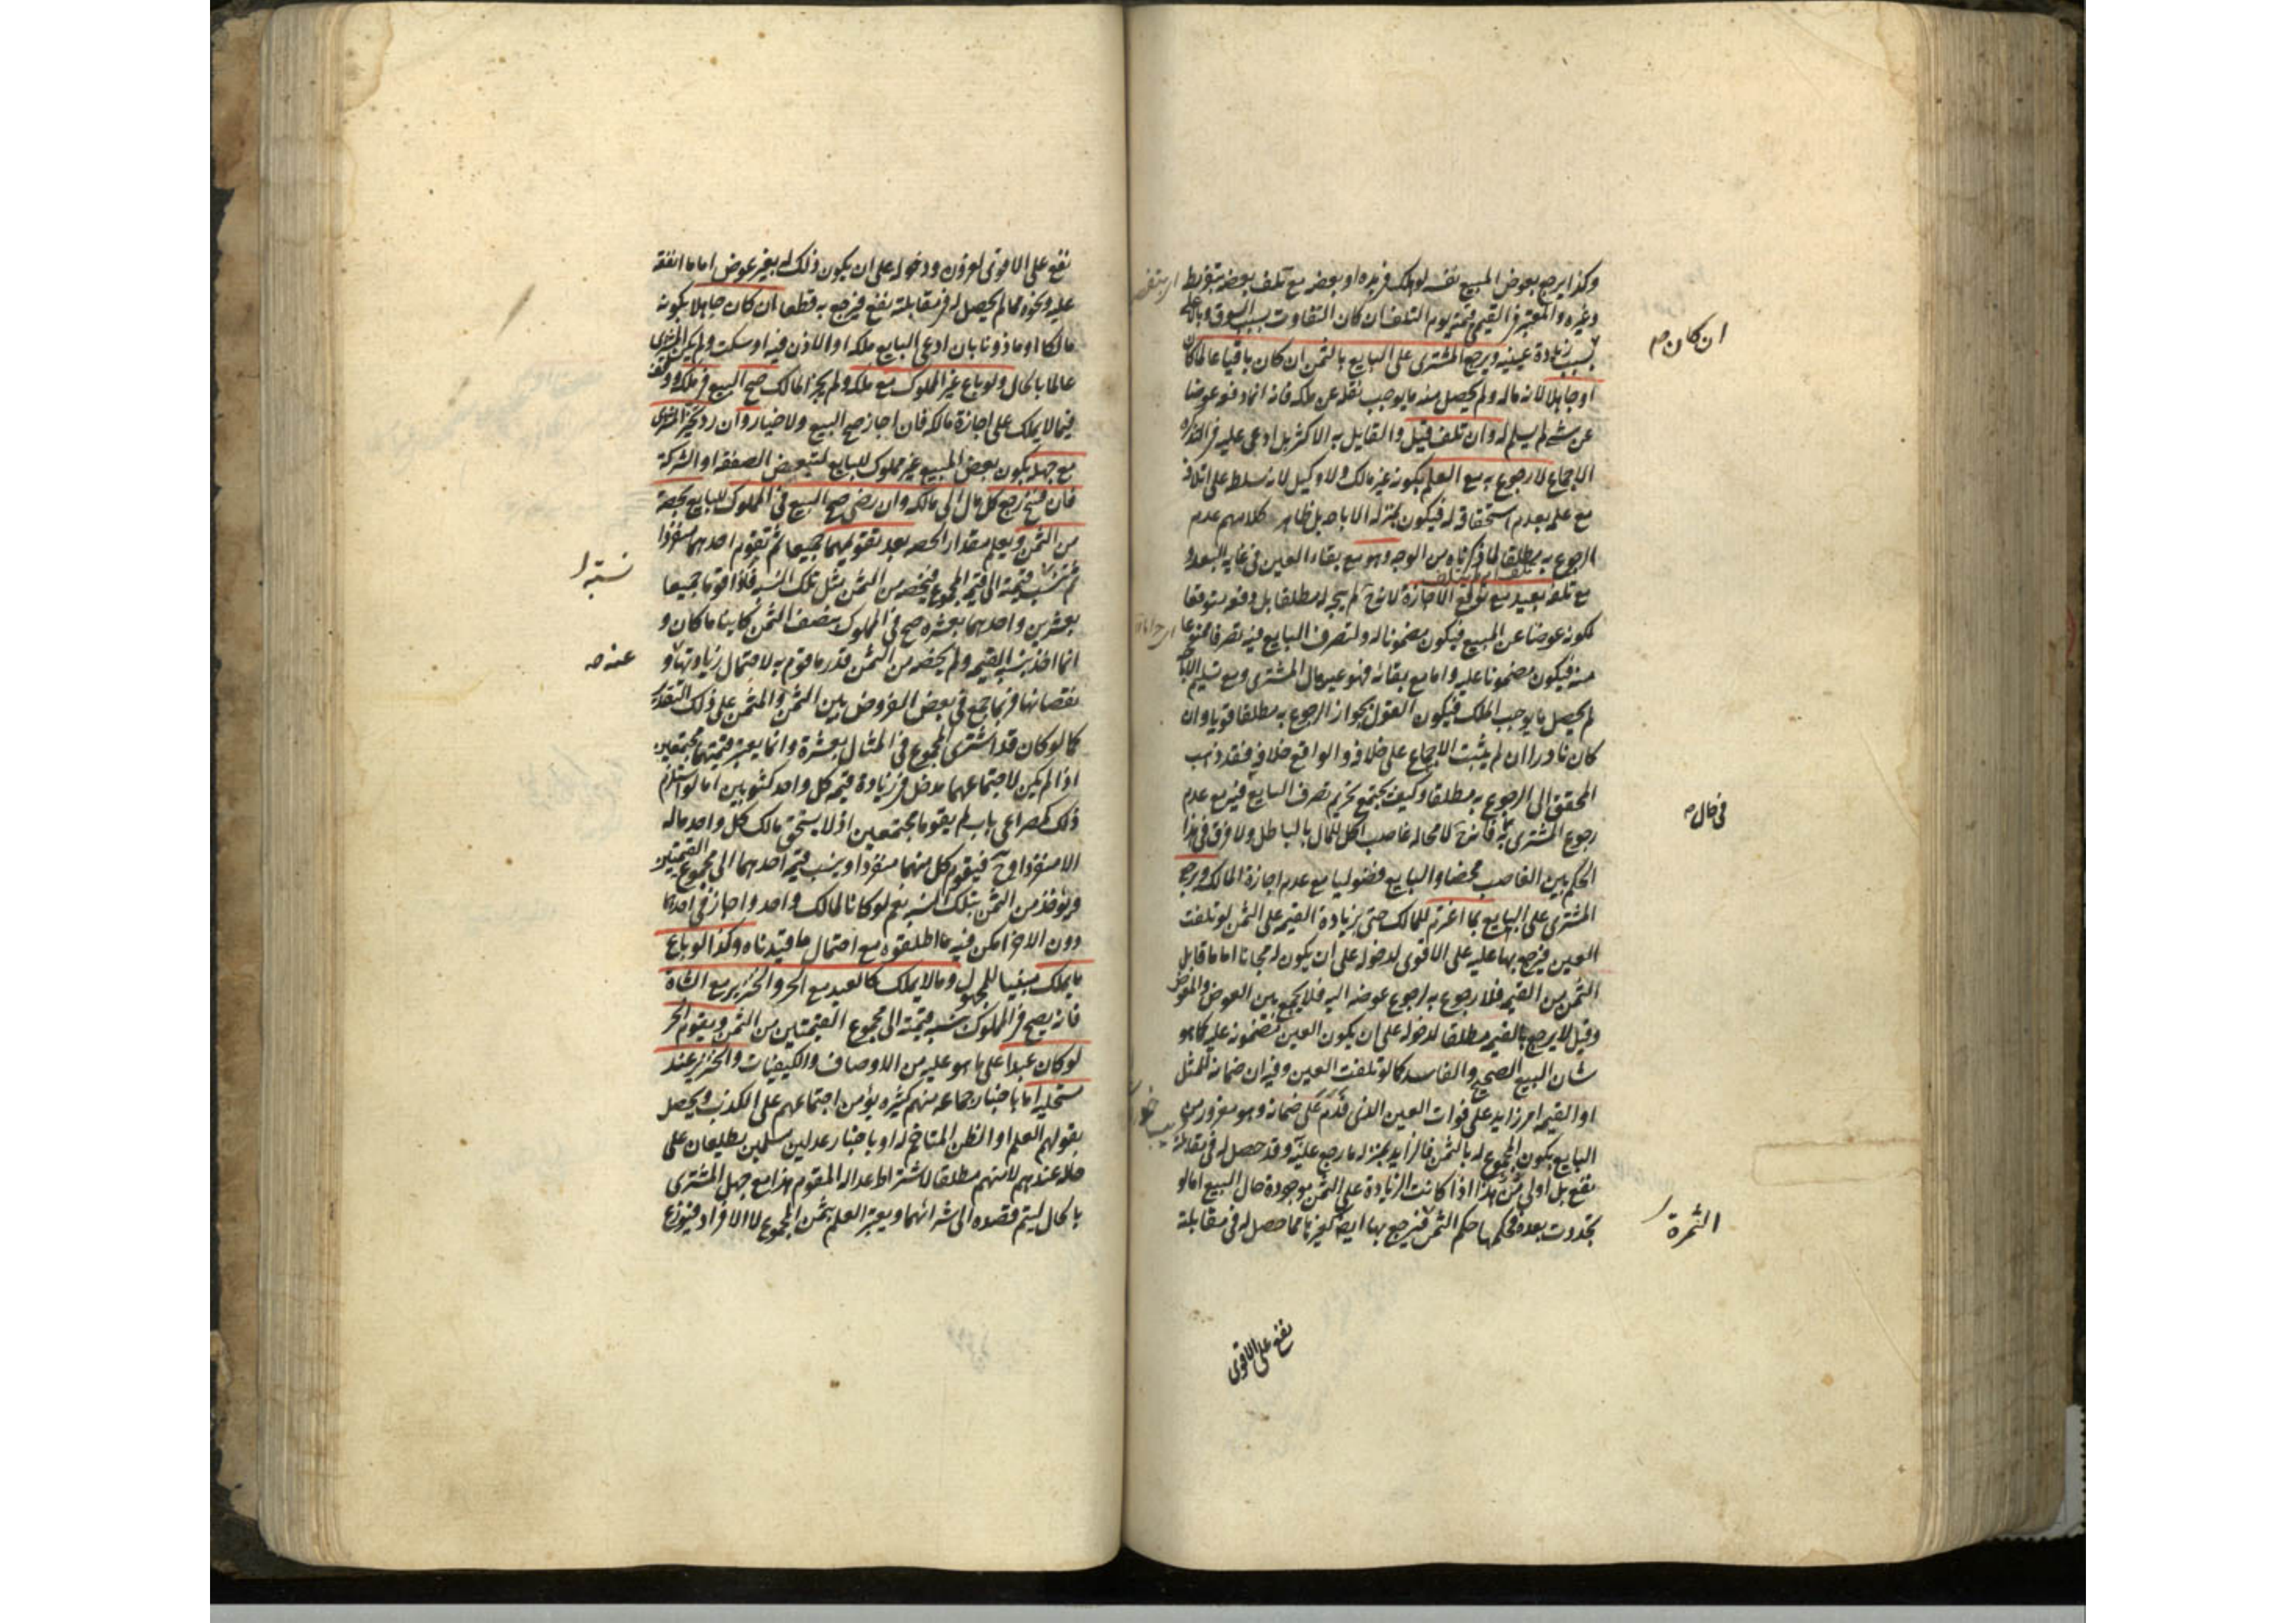 وكذا يرجع بعوض المبيع نفسه لو هلك في يده او بعضه مع تلف بعضه بتفريط
وغيره والمعتبر في القيمي قيمته يوم التلف ان كان التفاوت بسبب السوق وبالاعلى
بسبب زيادة عينية ويرجع المشترى على البايع بالثمن ان كان باقيا عالما كان
او جاهلا لانه ماله ولم يحصل منه ما يوجب نقله عن ملكه فانه انما دفعه عوضا
عن شئ لم يسلم له وان تلف قيل والقايل به الاكثر بل ادعى عليه في التذكره
الاجماع لا رجوع به مع العلم بكونه غير مالك ولا وكيل لانه سلطه على اتلافه
مع علمه بعدم استحقاقه له فيكون بمنزلة الاباحه بل ظاهر كلامهم عدم
الرجوع به مطلقا لما ذكرناه من الوجه وهو مع بقاء العين في غايه البعد و
مع تلفه بعيد مع توقع الاجازة لانه ح لم يبحه له مطلقا بل دفعه متوقعا
لكونه عوضا عن المبيع فيكون مضمونا له ولتصرف البايع فيه تصرفا ممنوعا
منه فيكون مضمونا عليه واما مع بقائه فهو عين مال المشترى ومع تسليم الاباحه
لم يحصل ما يوجب الملك فيكون القول بجواز الرجوع به مطلقا قويا وان
كان نادرا ان لم يثبت الاجماع على خلافه والواقع خلافه فقد ذهب
المحقق الى الرجوع به مطلقا وكيف يجتمع تحريم تصرف البايع فيه مع عدم
رجوع المشترى به فانه ح لا محاله غاصب اكل للمال بالباطل ولا فرق في هذا
الحكم بين الغاصب محضا والبايع فضوليا مع عدم اجازة المالك ويرجع
المشترى على البايع بما اغترم للمالك حتى بزيادة القيمه على الثمن لو تلفت
العين فيرجع بها عليه على الاقوى لدخوله على ان يكون له مجانا اما ما قابل
الثمن من القيمه فلا رجوع به لرجوع عوضه اليه فلا يجمع بين العوض والمعوض
وقيل لا يرجع بالقيمه مطلقا لدخوله على ان يكون العين مضمونه عليه كما هو
شان البيع الصحيح والفاسد كما لو تلفت العين وفيه ان ضمانه للمثل
او القيمه امر زايد على فوات العين الذى قدم على ضمانه وهو مغرور من
البايع بكون المجموع له بالثمن فالزايد بمنزله ما رجع عليه وقد حصل له في مقابلته
نفع بل اولى هذا اذا كانت الزيادة على الثمن موجودة حال البيع اما لو
تجددت بعده فحكمها حكم الثمن فيرجع بها ايضا كغيرها مما حصل له في مقابلته
نفع على الاقوى
ان كان ص
في كال ص
الثمرة
نفع على الاقوى لغروره ودخوله على ان يكون ذلك له بغير عوض اما ما انفقه
عليه ونحوه مما لم يحصل له في مقابلته نفع فيرجع به قطعا ان كان جاهلا بكونه
مالكا او ماذونا بان ادعى البايع ملكه او الاذن فيه او سكت ولم يكن المشترى
عالما بالحال ولو باع غير المملوك مع ملكه ولم يجز المالك صح البيع في ملكه ووقف
فيما لا يملك على اجازة مالكه فان اجاز صح البيع ولا خيار وان رد تخير المشترى
مع جهله بكون بعض المبيع غير مملوك للبايع لتبعض الصفقه او الشركة
فان فسخ رجع كل مال الى مالكه وان رضى صح البيع في المملوك للبايع بحصه
من الثمن ويعلم مقدار الحصه بعد تقويمهما جميعا ثم تقويم احدهما منفردا
ثم تنسب قيمته الى قيمة المجموع فيخصه من الثمن مثل تلك النسبه فاذا قوما جميعا
بعشرين واحدهما بعشره صح في المملوك بنصف الثمن كاينا ما كان و
انما اخذ بنسبه القيمه ولم يخصه من الثمن قدر ما قوم به لاحتمال زيادتها و
نقصانها فربما جمع في بعض الفروض بين الثمن والمثمن على ذلك التقدير
كما لو كان قد اشترى المجموع في المثال بعشرة وانما يعتبر قيمتهما مجتمعين
اذا لم يكن لاجتماعهما مدخل في زيادة قيمه كل واحد كثوبين اما لو استلزم
ذلك كمصراعى باب لم يقوما مجتمعين اذ لا يستحق مالك كل واحد ماله
الا منفردا وح فيقوم كل منهما منفردا وينسب قيمه احدهما الى مجموع القيمتين
ويؤخذ من الثمن بتلك النسبه نعم لو كانا لمالك واحد واجاز في احدهما
دون الاخر امكن فيه ما اطلقوه مع احتمال ما قيدناه وكذا لو باع
ما يملك مبنيا للمجهول وما لا يملك كالعبد مع الحر والخنزير مع الشاة
فانه يصح في المملوك بنسبه قيمته الى مجموع القيمتين من الثمن ويقوم الحر
لو كان عبدا على ما هو عليه من الاوصاف والكيفيات والخنزير عند
مستحليه اما باخبار جماعه منهم كثيره يؤمن اجتماعهم على الكذب ويحصل
بقولهم العلم او الظن المتاخم له او باخبار عدلين مسلمين يطلعان على
حاله عندهم لا منهم مطلقا لاشتراط عدالة المقوم هذا مع جهل المشترى
بالحال ليتم قصده الى شرائهما ويعتبر العلم بثمن المجموع لا الافراد فيوزع
نسبته
عنه ص